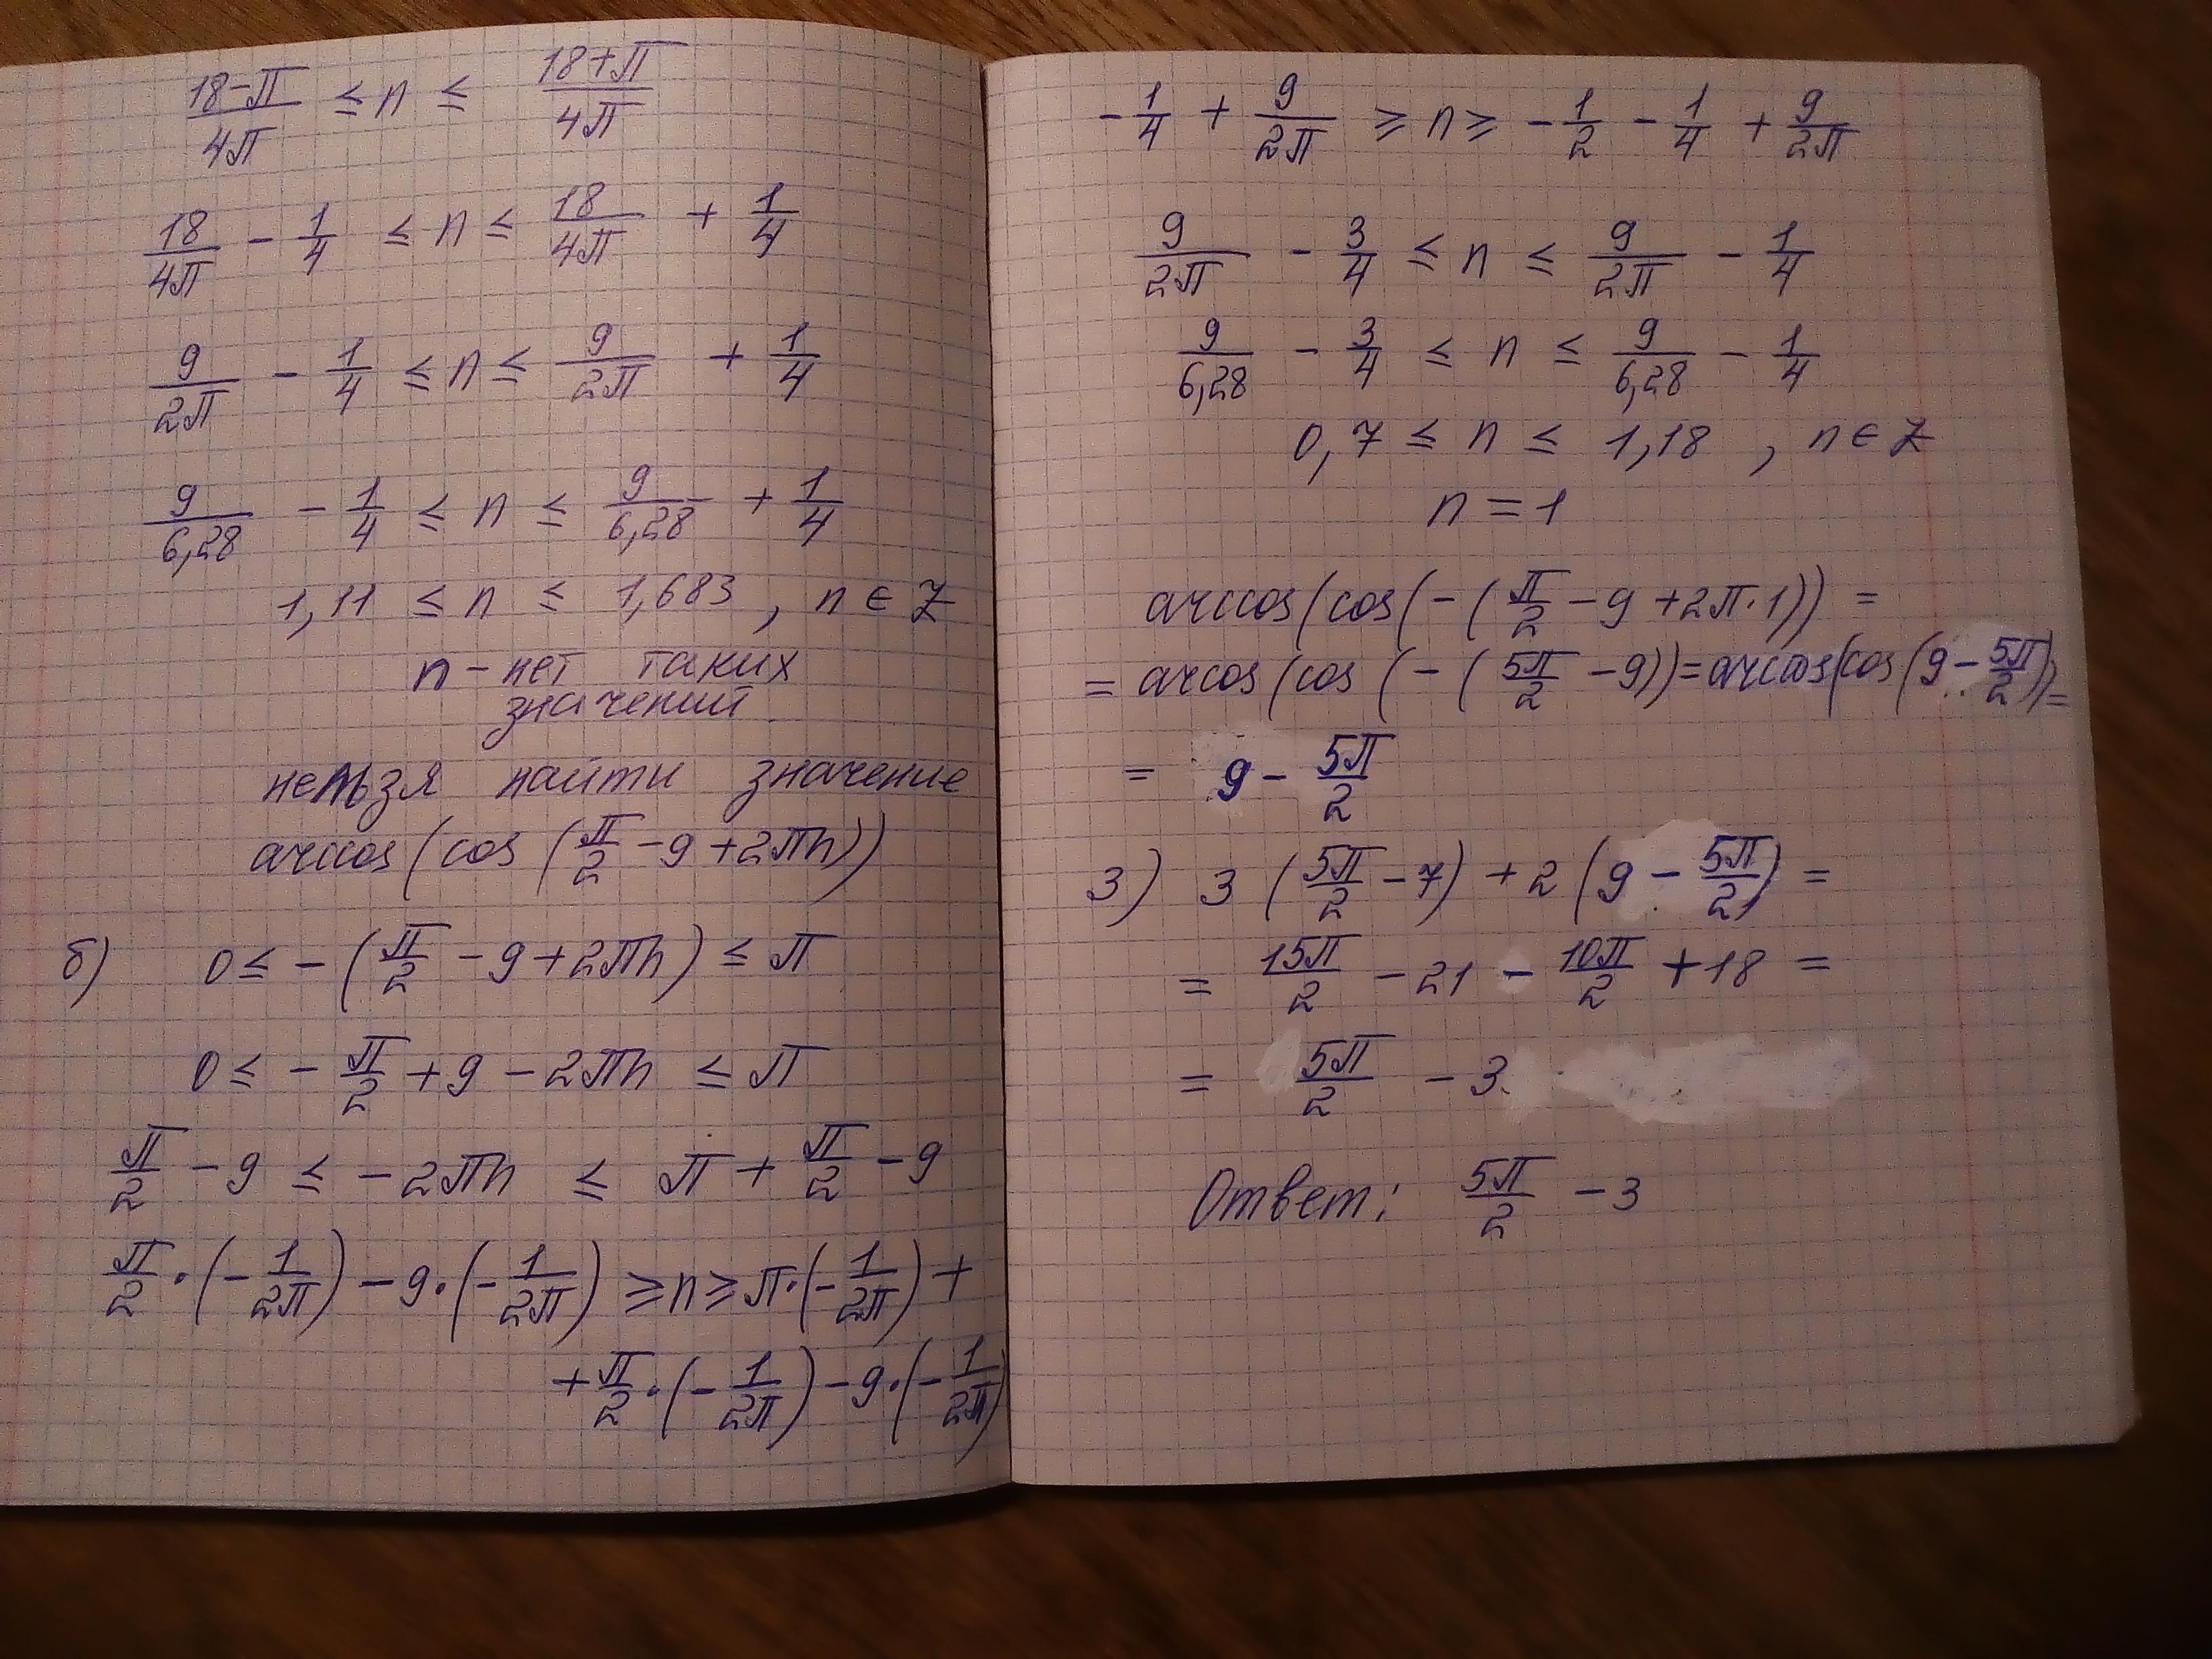 (18-π)/(4π) ≤ n ≤ (18+π)/(4π)
18/(4π) - 1/4 ≤ n ≤ 18/(4π) + 1/4
9/(2π) - 1/4 ≤ n ≤ 9/(2π) + 1/4
9/6,28 - 1/4 ≤ n ≤ 9/6,28 + 1/4
1,11 ≤ n ≤ 1,683 , n ∈ Z
n - нет таких
значений
нельзя найти значение
arccos(cos(π/2 - 9 + 2πn))
б) 0 ≤ -(π/2 - 9 + 2πn) ≤ π
0 ≤ - π/2 + 9 - 2πn ≤ π
π/2 - 9 ≤ -2πn ≤ π + π/2 - 9
π/2 · (- 1/(2π)) - 9 · (- 1/(2π)) ≥ n ≥ π · (- 1/(2π)) +
+ π/2 · (- 1/(2π)) - 9 · (- 1/(2π))
- 1/4 + 9/(2π) ≥ n ≥ - 1/2 - 1/4 + 9/(2π)
9/(2π) - 3/4 ≤ n ≤ 9/(2π) - 1/4
9/6,28 - 3/4 ≤ n ≤ 9/6,28 - 1/4
0,7 ≤ n ≤ 1,18 , n ∈ Z
n = 1
arccos(cos(-(π/2 - 9 + 2π·1)) =
= arcos(cos(-(5π/2 - 9)) = arccos(cos(9 - 5π/2)) =
= 9 - 5π/2
3) 3(5π/2 - 7) + 2(9 - 5π/2) =
= 15π/2 - 21 - 10π/2 + 18 =
= 5π/2 - 3
Ответ: 5π/2 - 3